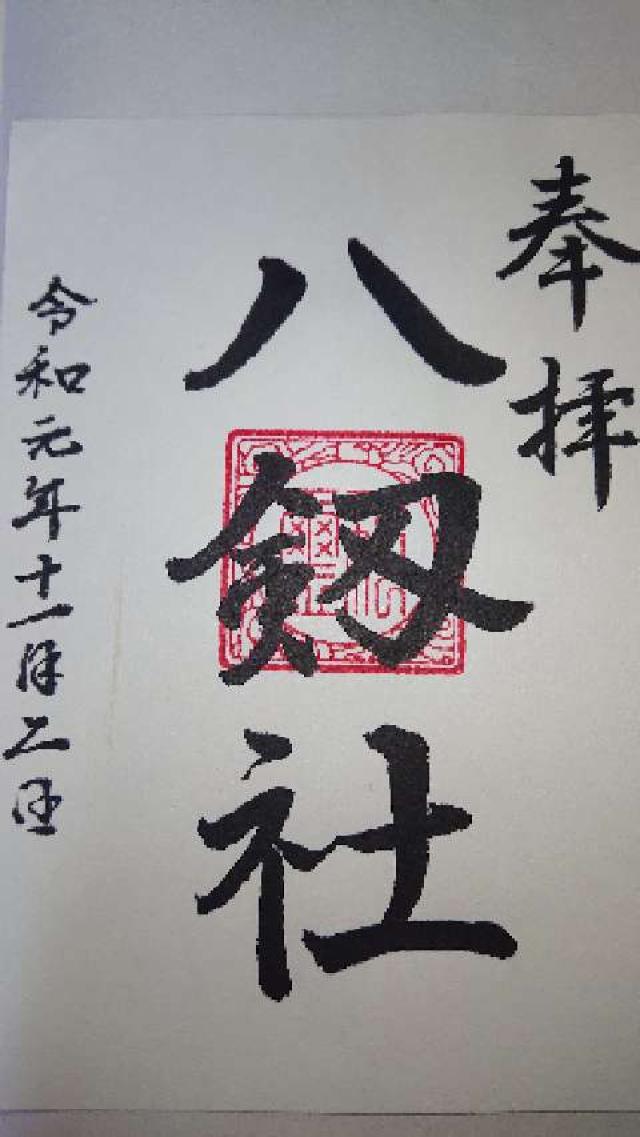 奉拝
八釼社
令和元年十一月二日